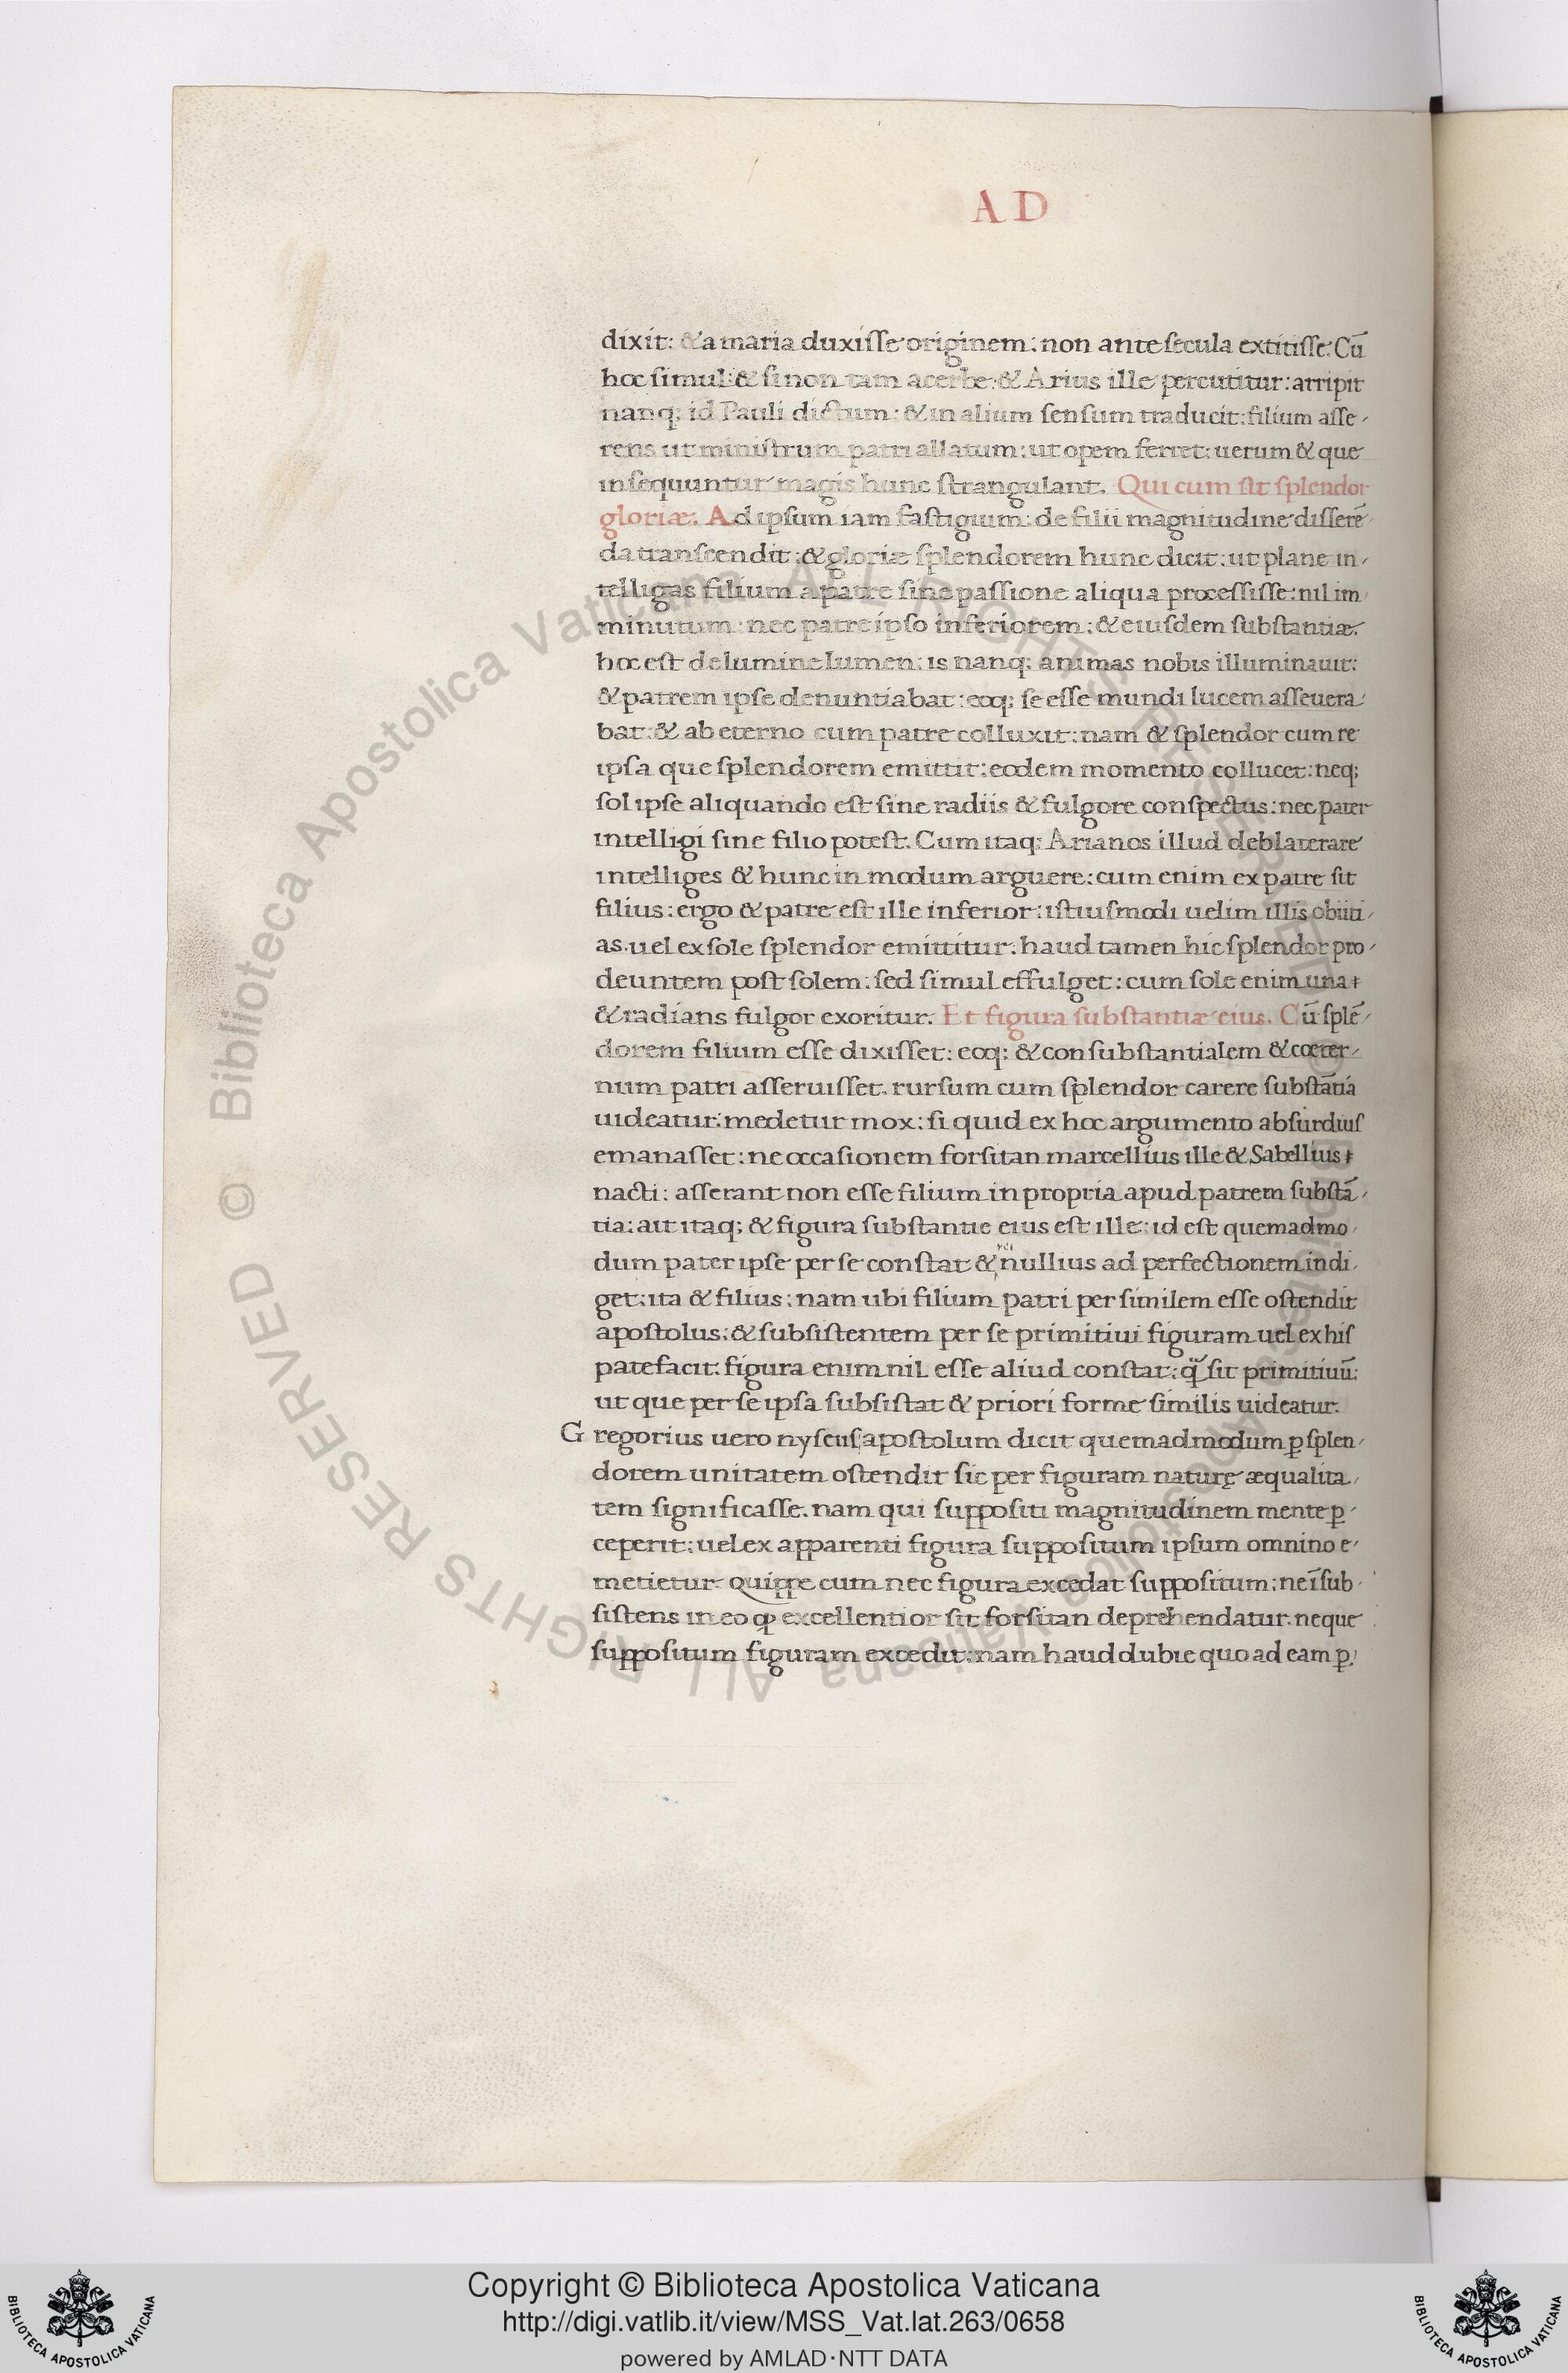 AD
dixit: & a maria duxisse originem: non ante secula extitisse: Cū
hoc simul: & si non tam acerbe: & Arius ille percutitur: arripit
nanq; id Pauli dictum: & in alium sensum traducit: filium asse-
rens ut ministrum patri allatum: ut opem ferret: uerum & que
insequuntur magis hunc strangulant. Qui cum sit splendor
gloriæ. Ad ipsum iam fastigium: de filii magnitudine disserē-
da transcendit: & gloriæ splendorem hunc dicit: ut plane in-
telligas filium a patre sine passione aliqua processisse: nil im-
minutum: nec patre ipso inferiorem: & eiusdem substantiæ.
hoc est de lumine lumen: is nanq; animas nobis illuminauit:
& patrem ipse denuntiabat: eoq; se esse mundi lucem asseuera-
bat: & ab eterno cum patre colluxit: nam & splendor cum re
ipsa que splendorem emittit: eodem momento collucet: neq;
sol ipse aliquando est sine radiis & fulgore conspectus: nec pater
intelligi sine filio potest. Cum itaq; Arianos illud deblaterare
intelliges & hunc in modum arguere: cum enim ex patre sit
filius: ergo & patre est ille inferior: istiusmodi uelim illis obiiti-
as. uel ex sole splendor emittitur. haud tamen hic splendor pro-
deuntem post solem: sed simul effulget: cum sole enim una
& radians fulgor exoritur. Et figura substantiæ eius. Cū splē-
dorem filium esse dixisset: eoq; & consubstantialem & coeter-
num patri asseruisset. rursum cum splendor carere substātiá
uideatur: medetur mox: si quid ex hoc argumento absurdius
emanasset: ne occasionem forsitan marcellius ille & Sabellius
nacti: asserant non esse filium in propria apud patrem substā-
tia: ait itaq; & figura substantie eius est ille: id est quemadmo-
dum pater ipse per se constat & rei nullius ad perfectionem indi-
get: ita & filius: nam ubi filium patri per similem esse ostendit
apostolus: & subsistentem per se primitiui figuram uel ex his
patefacit: figura enim nil esse aliud constat: q̃ sit primitiuū:
ut que per se ipsa subsistat & priori forme similis uideatur.
Gregorius uero nyscus apostolum dicit quemadmodum ꝑ splen-
dorem unitatem ostendit sic per figuram naturę æqualita-
tem significasse. nam qui suppositi magnitudinem mente ꝑ-
ceperit: uel ex apparenti figura suppositum ipsum omnino e-
metietur. quippe cum nec figura excedat suppositum: ne ī sub-
sistens in eo ꝙ excellentior sit forsitan deprehendatur. neque
suppositum figuram excedit: nam haud dubie quo ad eam ꝑ-
© Biblioteca Apostolica Vaticana ALL RIGHTS RESERVED © Biblioteca Apostolica Vaticana ALL RIGHTS RESERVED
BIBLIOTECA APOSTOLICA VATICANA
Copyright © Biblioteca Apostolica Vaticana
http://digi.vatlib.it/view/MSS_Vat.lat.263/0658
powered by AMLAD·NTT DATA
BIBLIOTECA APOSTOLICA VATICANA